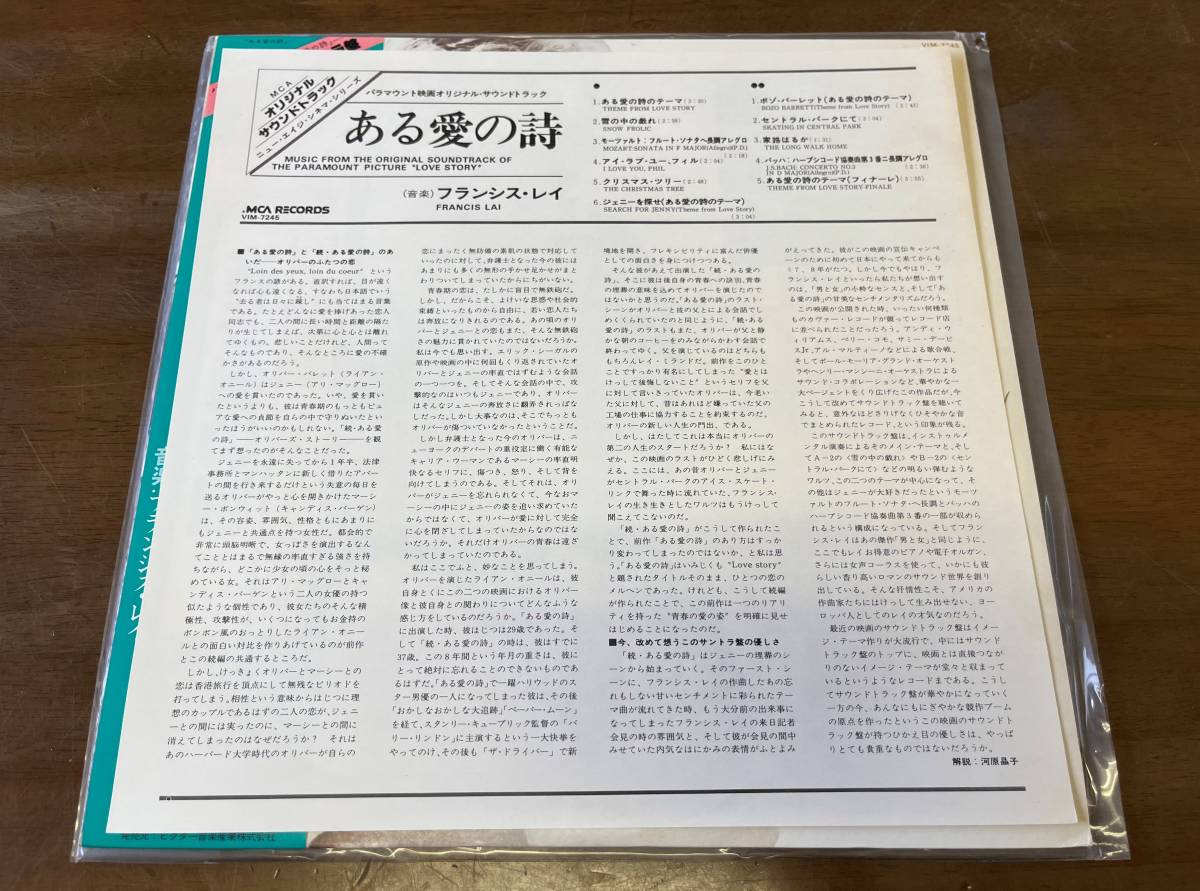 「ある愛の詩」
VIM-7245
MCA
オリジナル
サウンドトラック
ニュー・エイジ・シネマ・シリーズ
パラマウント映画オリジナル・サウンドトラック
ある愛の詩
MUSIC FROM THE ORIGINAL SOUNDTRACK OF
THE PARAMOUNT PICTURE "LOVE STORY"
(音楽)フランシス・レイ
FRANCIS LAI
MCA RECORDS
VIM-7245
●
1.ある愛の詩のテーマ
THEME FROM LOVE STORY
2.雪の中の戯れ(2:58)
SNOW FROLIC
3.モーツァルト:フルート・ソナタヘ長調アレグロ
MOZART:SONATA IN F MAJOR(Allegro)(P.D.)
(2:18)
4.アイ・ラブ・ユー、フィル(2:04)
I LOVE YOU, PHIL
5.クリスマス・ツリー(2:48)
THE CHRISTMAS TREE
6.ジェニーを探せ(ある愛の詩のテーマ)
SEARCH FOR JENNY(Theme from Love Story)
(3:04)
●●
1.ボゾ・バーレット(ある愛の詩のテーマ)
BOZO BARRETT(Theme from Love Story)(2:43)
2.セントラル・パークにて(3:04)
SKATING IN CENTRAL PARK
3.家路はるか(1:31)
THE LONG WALK HOME
4.バッハ:ハープシコード協奏曲第3番ニ長調アレグロ
J.S.BACH: CONCERTO NO.3
IN D MAJOR(Allegro)(P.D.)
5.ある愛の詩のテーマ(フィナーレ)
THEME FROM LOVE STORY-FINALE
■「ある愛の詩」と「続・ある愛の詩」のあ
いだ──オリバーのふたつの恋
"Loin des yeux, loin du coeur" という
フランスの諺がある。直訳すれば、目が遠く
なれば心も遠くなる、すなわち日本語でいう
"去る者は日々に疎し"にも当てはまる言葉
である。たとえどんなに愛を捧げあった恋人
同志でも、二人の間に長い時間と距離の隔た
りが生じてしまえば、次第に心と心とは離れ
てゆくもの。悲しいことだけれど、人間って
そんなものであり、そんなところに愛の不確
かさがあるのだろう。
しかし、オリバー・バレット(ライアン・
オニール)はジェニー(アリ・マッグロー)
への愛を貫いたのであった。いや、愛を貫い
たというよりも、彼は青春期のもっともピュ
アな愛への貞節を自らの中で守りぬいたとい
ったほうがいいのかもしれない。「続・ある愛
の詩」──オリバーズ・ストーリー──を観
てまず想ったのがそんなことだった。
ジェニーを永遠に失ってから1年半、法律
事務所とマンハッタンに新しく借りたアパー
トの間を行き来するだけという失意の毎日を
送るオリバーがやっと心を開きかけたマーシ
ー・ボンウィット(キャンディス・バーゲン)
は、その容姿、雰囲気、性格ともにあまりに
もジェニーと共通点を持つ女性だ。都会的で
非常に頭脳明晰で、女っぽさを演出するなん
てこととはまるで無縁の率直すぎる強さを持
ちながら、どこかに少女の頃の心をそっと秘
めている女。それはアリ・マッグローとキャ
ンディス・バーゲンという二人の女優の持つ
似たような個性であり、彼女たちのそんな積
極性、攻撃性が、いくつになってもお金持の
ボンボン風のおっとりしたライアン・オニー
ルとの面白い対比を作りあげているのが前作
とこの続編の共通するところだ。
しかし、けっきょくオリバーとマーシーとの
恋は香港旅行を頂点にして無残なピリオドを
打ってしまう。相性という意味からはじつに理
想のカップルであるはずの二人の恋が、ジェニ
ーとの間には実ったのに、マーシーとの間に
消えてしまったのはなぜだろうか? それは
あのハーバード大学時代のオリバーが自らの
恋にまったく無防備の素肌の状態で対応して
いったのに対して、弁護士となった今の彼には
あまりにも多くの無形の手かせ足かせがまと
わりついてしまっていたからにちがいない。
青春期の恋は、たしかに盲目で無鉄砲だ。
しかし、だからこそ、よけいな思惑や社会的
束縛といったものから自由に、若い恋人たち
は奔放になりきれるのである。あの頃のオリ
バーとジェニーとの恋もまた、そんな無鉄砲
さの魅力に貫かれていたのではないだろうか。
私は今でも思い出す。エリック・シーガルの
原作や映画の中に何回もくり返されていたオ
リバーとジェニーの率直ではずむような会話
の一つ一つを。そしてそんな会話の中で、攻
撃的なのはいつもジェニーであり、オリバー
はそんなジェニーの奔放さに翻弄されっぱな
しだった。しかし大事なのは、そこでちっとも
オリバーが傷ついていなかったということだ。
しかし弁護士となった今のオリバーは、ニ
ューヨークのデパートの重役定に働く有能な
キャリア・ウーマンであるマーシーの率直明
快なるセリフに、傷つき、怒り、そして背を
向けてしまうのである。そしてそれは、オリ
バーがジェニーを忘れられなくて、今なおマ
ーシーの中にジェニーの姿を追い求めていた
からではなくて、オリバーが愛に対して完全
に心を閉ざしてしまっていたからならではな
いだろうか。それだけオリバーの青春は遠ざ
かってしまっていたのである。
私はここでふと、妙なことを思ってしまう。
オリバーを演じたライアン・オニールは、彼
自身とくにこの二つの映画におけるオリバー
像と彼自身との関わりについてどんなふうな
感じ方をしているのだろうか。「ある愛の詩」
に出演した時、彼はじつは29歳であった。そ
して「続・ある愛の詩」の時は、彼はすでに
37歳。この8年間という年月の重さは、彼に
とって絶対に忘れることのできないものであ
るはずだ。「ある愛の詩」で一躍ハリウッドのス
ター男優の一人になってしまった彼は、その後
「おかしなおかしな大追跡」「ペーパー・ムーン」
を経て、スタンリー・キューブリック監督の「バ
リー・リンドン」に主演するという一大快挙を
やってのけ、その後も「ザ・ドライバー」で新
境地を開き、フレキシビリティに富んだ俳優
としての面白さを身につけつつある。
そんな彼があえて出演した「続・ある愛の
詩」、そこに彼は後自身の青春への訣別、青春
の埋葬の意味を込めてオリバーを演じたので
はないかと思うのだ。「ある愛の詩」のラスト・
シーンがオリバーと彼の父とによる会話でし
めくくられていたのと同じように、「続・ある
愛の詩」のラストもまた、オリバーが父と静
かな朝のコーヒーをのみながらかわす会話で
終わってゆく。父を演じているのはどちらも
もちろんレイ・ミランドだ。前作をこのひと
ことですっかり有名にしてしまった"愛とは
けっして後悔しないこと"というセリフを父
に対して言いきっていたオリバーは、今老い
た父に対して、昔はあれほど嫌っていた父の
工場の仕事に協力することを約束するのだ。
オリバーの新しい人生の門出、である。
しかし、はたしてこれは本当にオリバーの
第二の人生のスタートだろうか? 私にはな
ぜか、この映画のラストがひどく悲しげにみ
える。ここには、あの昔オリバーがジェニー
がセントラル・パークのアイス・スケート・
リンクで舞った時に流れていた、フランシス・
レイの生き生きとしたワルツはもうけっして
聞こえてこないのだ。
「続・ある愛の詩」がこうして作られたこ
とで、前作「ある愛の詩」のあり方はすっか
り変わってしまったのではないか、と私は思
う。「ある愛の詩」はいみじくも "Love story"
と題されたタイトルそのまま、ひとつの恋の
メルヘンであった。けれども、こうして続編
が作られたことで、この前作は一つのリアリ
ティを持った"青春の愛の姿"を明確に見せ
はじめることになったのだ。
■今、改めて想うこのサントラ盤の優しさ
「続・ある愛の詩」はジェニーの埋葬のシ
ーンから始まっていく。そのファースト・シ
ーンに、フランシス・レイの作曲したあの忘
れもしない甘いセンチメントに彩られたテー
マ曲が流れてきた時、もう大分前の出来事に
なってしまったフランシス・レイの来日記者
会見の時の雰囲気と、そして彼が会見の間中
みせていた内気なはにかみの表情がふとよみ
がえってきた。彼がこの映画の宣伝キャンペ
ーンのために初めて日本にやって来てからも
う7、8年がたつ。しかし今でもやはり、フ
ランシス・レイといったら私たちが想い出す
のは、「男と女」の小粋なセンスと、そして「あ
る愛の詩」の甘美なセンチメンタリズムだろう。
この映画が公開された時、いったい何種類
ものカヴァー・レコードが競ってレコード店
に並べられたことだったろう。アンディ・ウ
ィリアムス、ペリー・コモ、サミー・デービ
スJr.、アル・マルティーノなどによる歌合戦、
そしてポール・モーリア・グランド・オーケスト
ラやヘンリー・マンシーニ・オーケストラによる
サウンド・コラボレーションなど、華やかな一
大ページェントをくり広げたこの作品だが、今
こうして改めてサウンドトラック盤を聴いて
みると、意外なほどさりげなくひそやかな音
でまとめられたレコード、という印象が残る。
このサウンドトラック盤は、インストゥルメ
ンタル演奏によるそのメイン・テーマと、そし
てA-2の〈雪の中の戯れ〉やB-2の〈セン
トラル・パークにて〉などの明るい弾むような
ワルツ、この二つのテーマが中心になって、そ
の他はジェニーが大好きだったというモーツ
ァルトのフルート・ソナタ・ヘ長調とバッハの
ハープシコード協奏曲第3番の一部が収めら
れるという構成になっている。そしてフラン
シス・レイはあの傑作「男と女」と同じように、
ここでもレイお得意のピアノや電子オルガン、
さらには女声コーラスを使って、いかにも彼
らしい香り高いロマンのサウンド世界を創り
出している。そんな抒情性こそ、アメリカの
作曲家たちにはけっして生み出せない、ヨー
ロッパ人としてのレイの才気なのだろう。
最近の映画のサウンドトラック盤はイメー
ジ・テーマ作りが大流行で、中にはサウンド
トラック盤のトップに、映画とは直接つなが
りのないイメージ・テーマが堂々と収まって
いるというようなレコードまである。こうし
てサウンドトラック盤が華やかになっていく
一方の今、あんなにもにぎやかな競作ブーム
の原点を作ったというこの映画のサウンドト
ラック盤が持つひかえ目の優しさは、やっぱ
りとても貴重なものではないだろうか。
解説:河原晶子
発売元・ビクター音楽産業株式会社